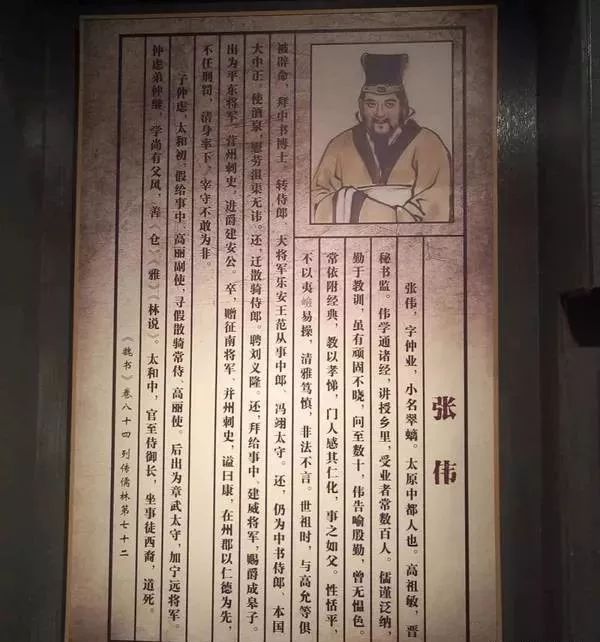 张伟
张伟，字仲业，小名翠螭。太原中都人也。高祖敏，晋
秘书监。伟学通诸经，讲授乡里，受业者常数百人。儒谨泛纳，
勤于教训，虽有顽固不晓，问至数十，伟告喻殷勤，曾无愠色。
常依附经典，教以孝悌，门人感其仁化，事之如父。性恬平，
不以夷崄易操，清雅笃慎，非法不言。世祖时，与高允等俱
被辟命，拜中书博士。转侍郎、大将军乐安王范从事中郎、冯翊太守。还，仍为中书侍郎、本国
大中正。使酒泉，慰劳沮渠无讳。还，迁散骑侍郎。聘刘义隆。还，拜给事中、建威将军，赐爵成皋子。
出为平东将军、营州刺史，进爵建安公。卒，赠征南将军、并州刺史，谥曰康，在州郡以仁德为先，
不任刑罚，清身率下，宰守不敢为非。
子仲虑，太和初，假给事中、高丽副使，寻假散骑常侍、高丽使。后出为章武太守，加宁远将军。
仲虑弟仲继，学尚有父风，善《仓》《雅》《林说》。太和中，官至侍御长，坐事徙西裔，道死。
《魏书》卷八十四 列传儒林第七十二